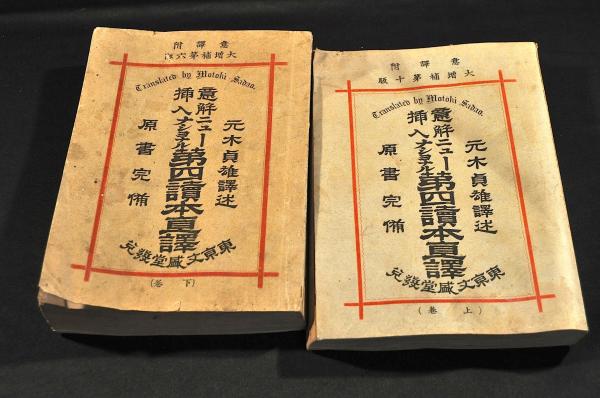 意譯附
大增補第六
Translated by Motoki Sadao.
元木貞雄譯述
意解ニュー
挿入ナショナル
第四讀本直譯
原書完備
東京文盛堂發兌
(下卷)
意譯附
大增補第十版
Translated by Motoki Sadao.
元木貞雄譯述
意解ニュー
挿入ナショナル
第四讀本直譯
原書完備
東京文盛堂發兌
(上卷)